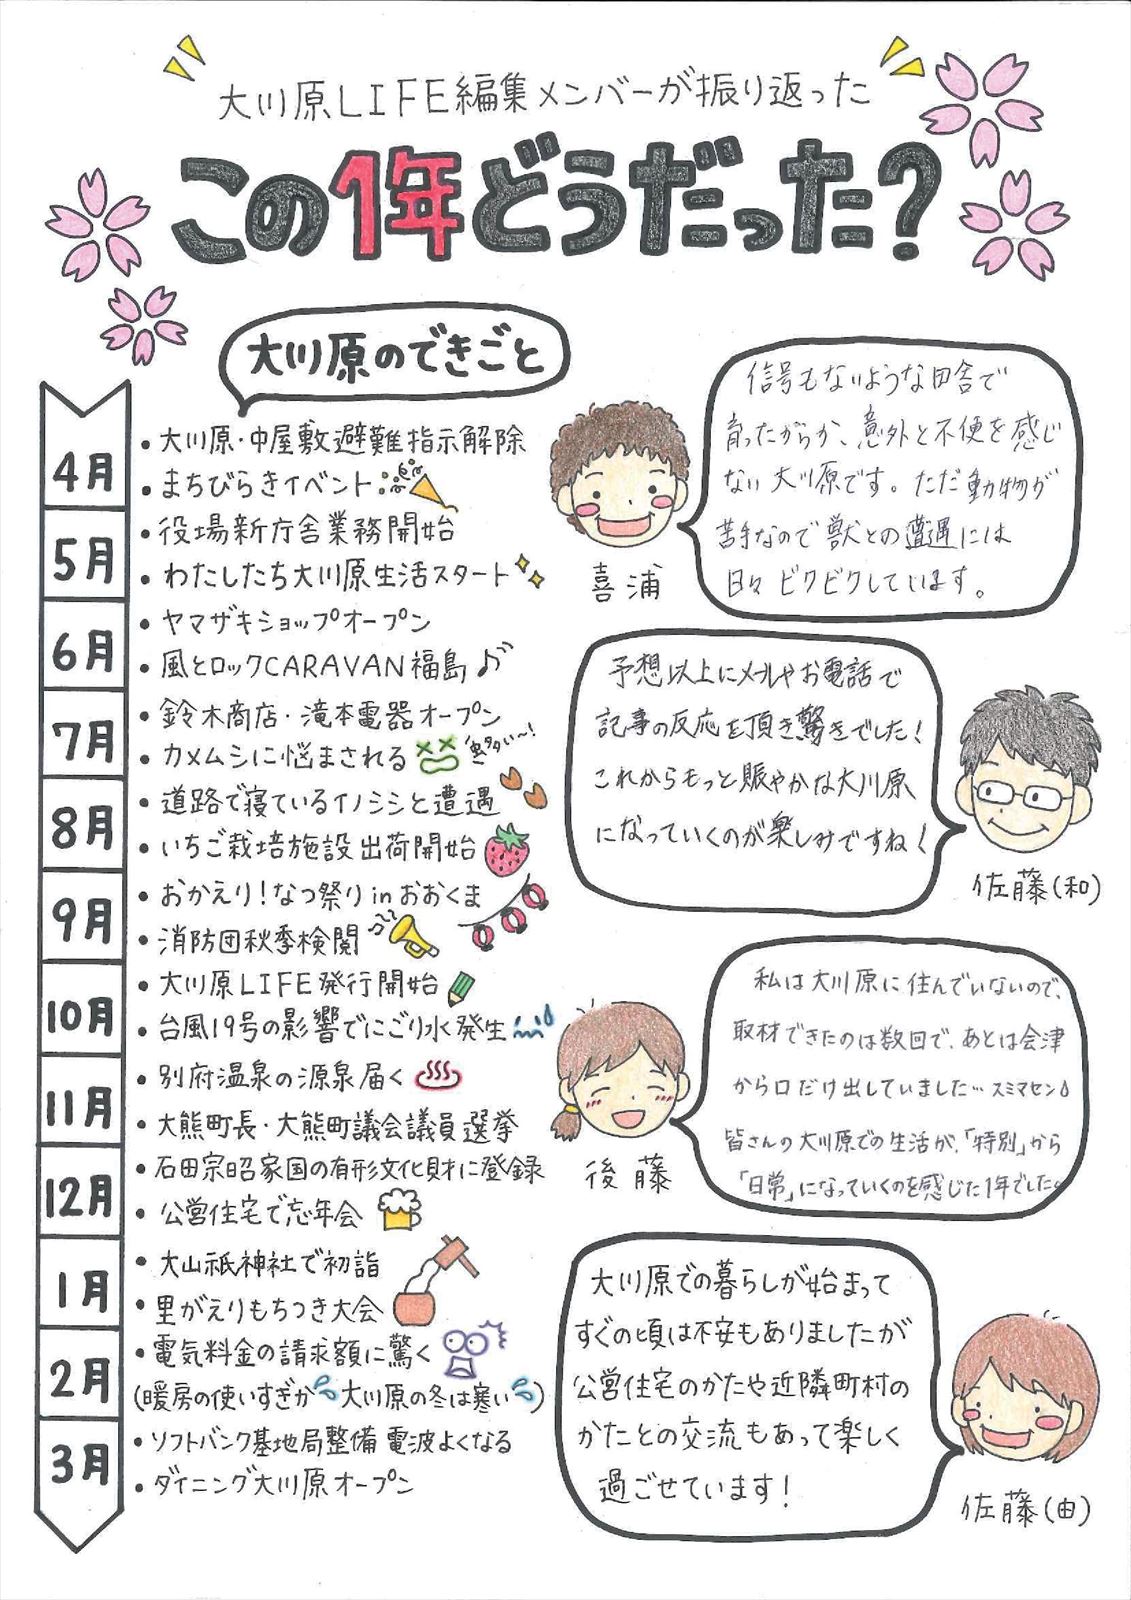 大川原LIFE編集メンバーが振り返った
この1年どうだった?
大川原のできごと
4月
・大川原・中屋敷避難指示解除
・まちびらきイベント
5月
・役場新庁舎業務開始
・わたしたち大川原生活スタート
6月
・ヤマザキショップオープン
・風とロックCARAVAN福島♪
7月
・鈴木商店・滝本電器オープン
・カメムシに悩まされる
虫多い〜!
8月
・道路で寝ているイノシシと遭遇
・いちご栽培施設出荷開始
9月
・おかえり!なつ祭りinおおくま
・消防団秋季検閲
10月
・大川原LIFE発行開始
・台風19号の影響でにごり水発生
11月
・別府温泉の源泉届く
・大熊町長・大熊町議会議員選挙
12月
・石田宗昭家国の有形文化財に登録
・公営住宅で忘年会
1月
・大山祗神社で初詣
・里がえりもちつき大会
2月
・電気料金の請求額に驚く
(暖房の使いすぎか 大川原の冬は寒い)
3月
・ソフトバンク基地局整備 電波よくなる
・ダイニング大川原オープン
信号もないような田舎で
育ったからか、意外と不便を感じ
ない大川原です。ただ動物が
苦手なので獣との遭遇には
日々ビクビクしています。
喜浦
予想以上にメールやお電話で
記事の反応を頂き驚きでした!
これからもっと賑やかな大川原
になっていくのが楽しみですね!
佐藤(和)
私は大川原に住んでいないので、
取材できたのは数回で、あとは会津
から口だけ出していました…スミマセン
皆さんの大川原での生活が、「特別」から
「日常」になっていくのを感じた1年でした。
後藤
大川原での暮らしが始まって
すぐの頃は不安もありましたが
公営住宅のかたや近隣町村の
かたとの交流もあって楽しく
過ごせています!
佐藤(由)